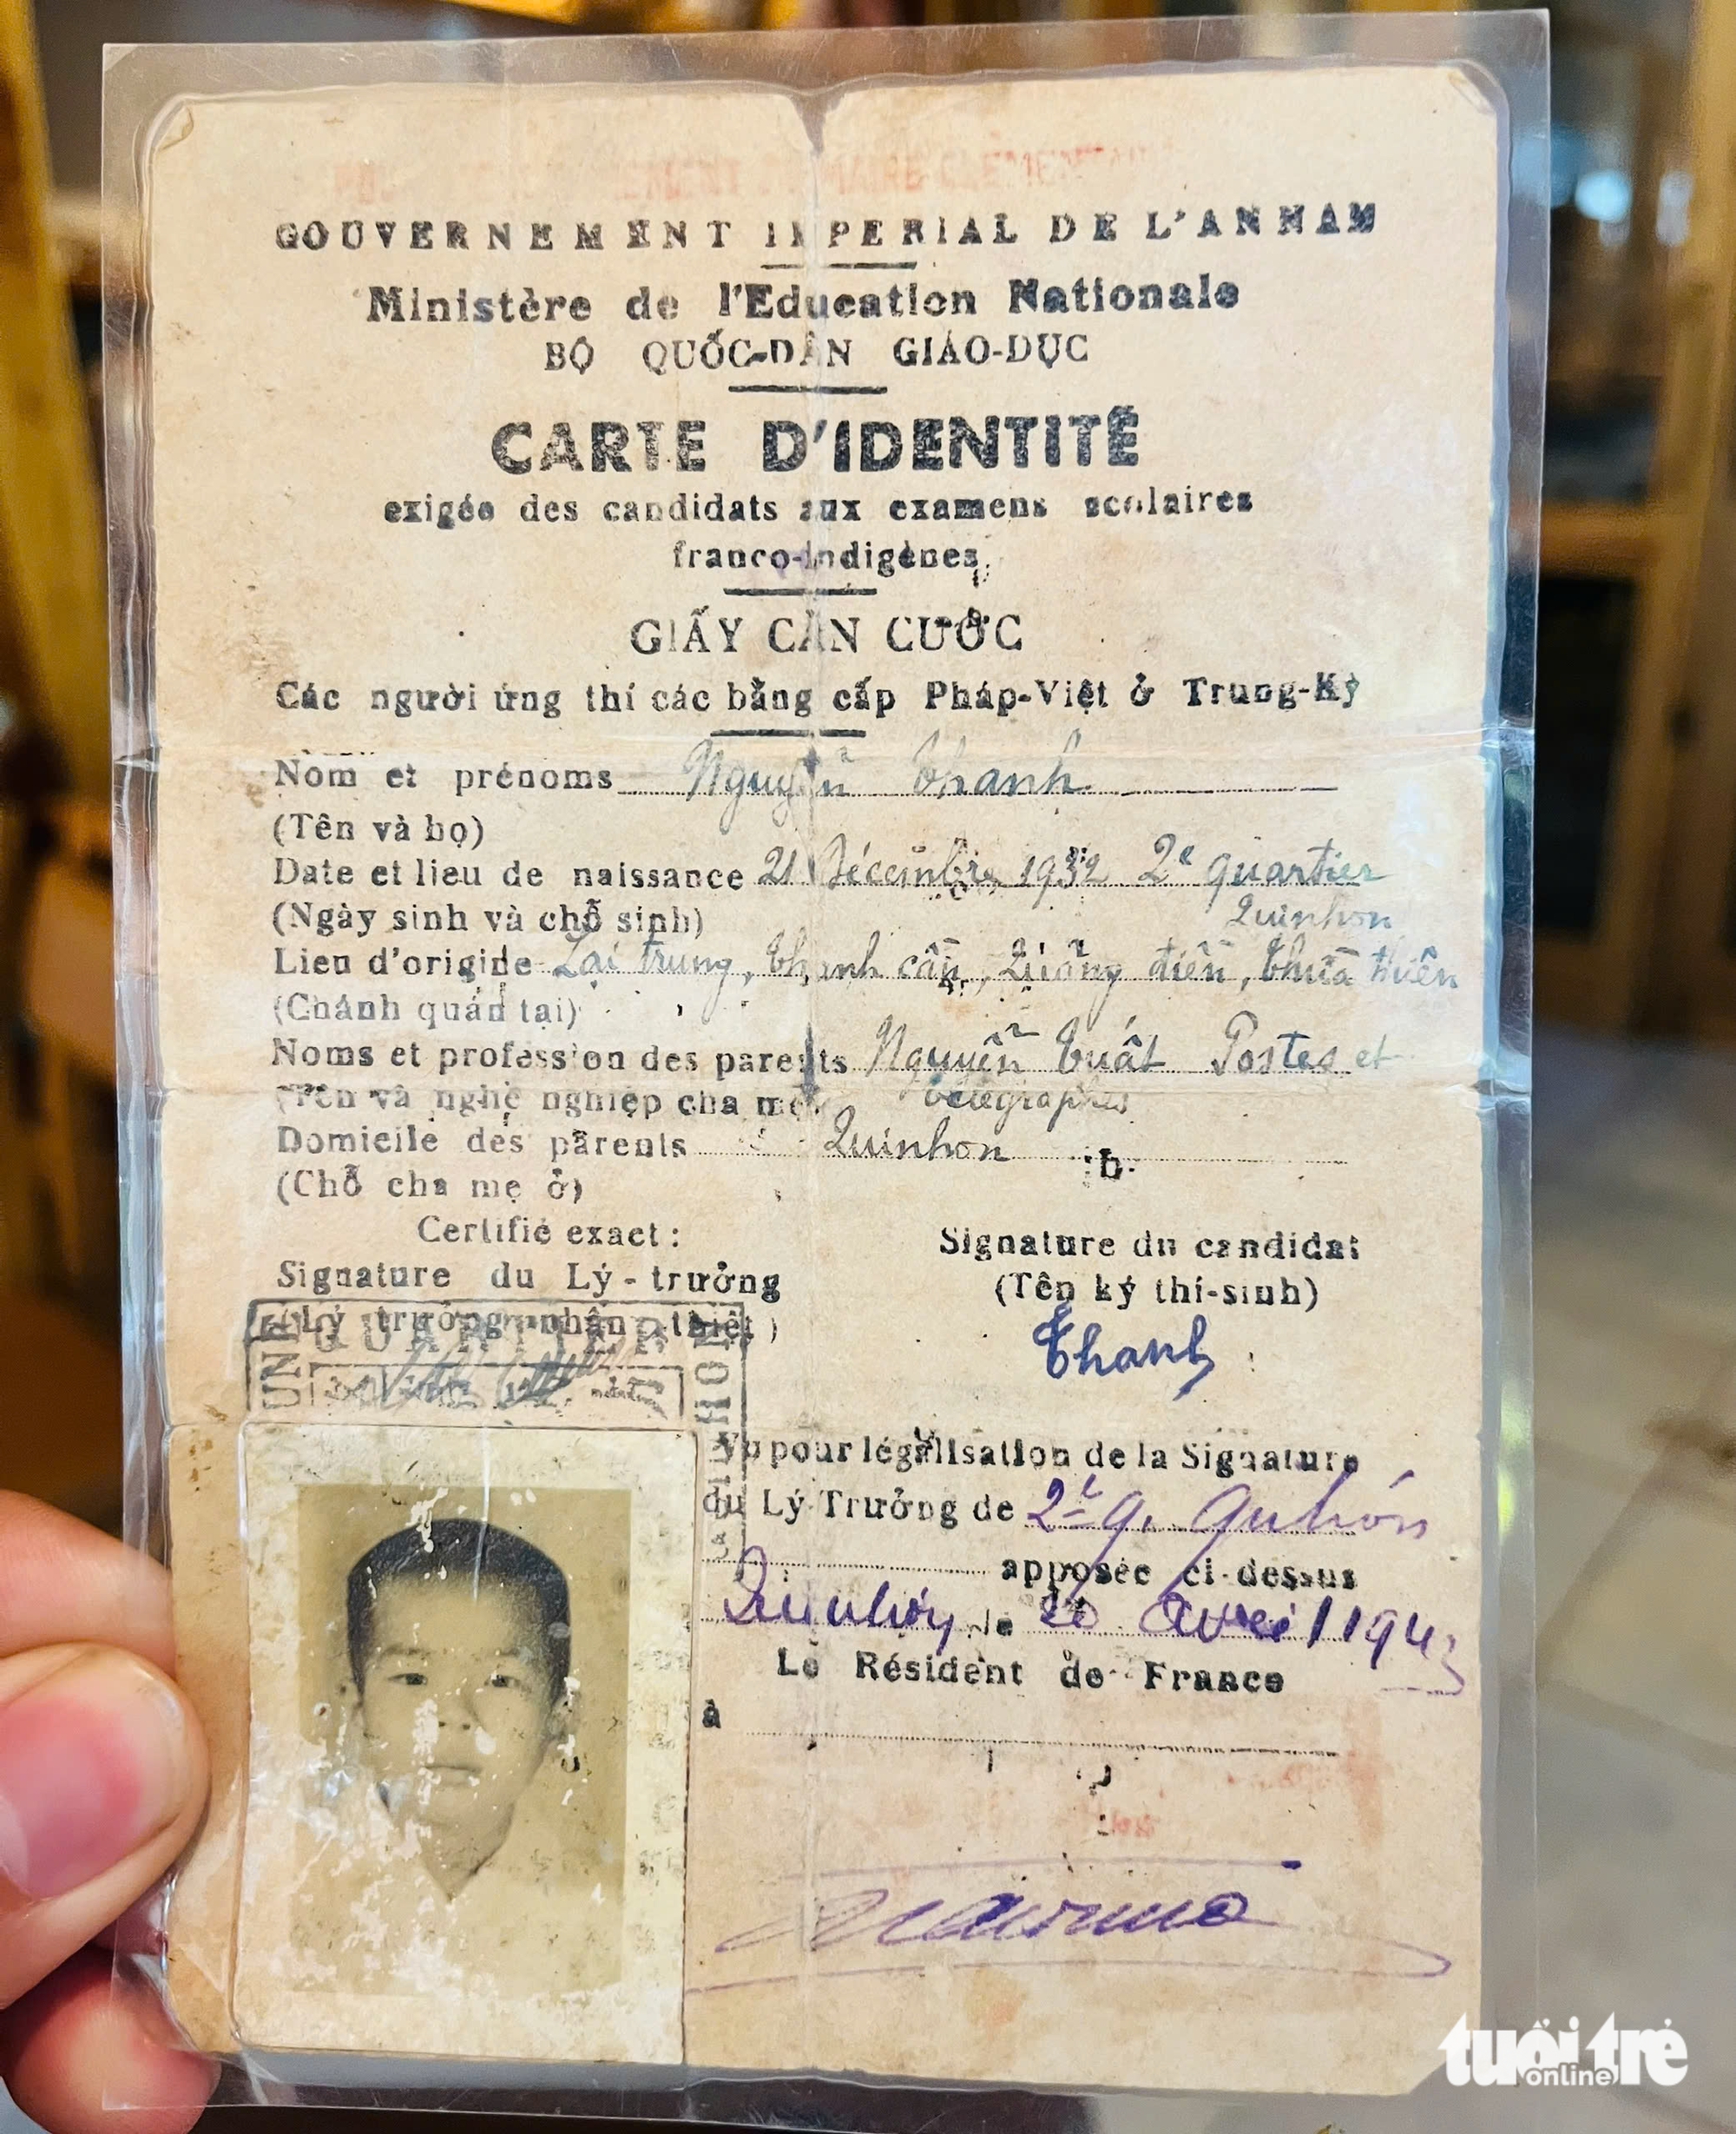 GOUVERNEMENT IMPERIAL DE L'ANNAM
Ministère de l'Education Nationale
BỘ QUỐC-DÂN GIÁO-DỤC
CARTE D'IDENTITÉ
exigée des candidats aux examens scolaires
franco-indigènes
GIẤY CĂN CƯỚC
Các người ứng thí các bằng cấp Pháp-Việt ở Trung-Kỳ
Nom et prénoms Nguyễn Thanh
(Tên và họ)
Date et lieu de naissance 21 Décembre 1932 2e quartier
(Ngày sinh và chỗ sinh) Quinhon
Lieu d'origine Lai trung, Thanh cần, Quảng điền, Thừa thiên
(Chánh quán tại)
Noms et profession des parents Nguyễn Tuất Postes et
(Tên và nghề nghiệp cha mẹ) Télégraphes
Domicile des parents Quinhon
(Chỗ cha mẹ ở)
Certifié exact :
Signature du Lý-trưởng
(Lý trưởng nhận thiệt)
QUARTIER
Signature du candidat
(Tên ký thí-sinh)
Thanh
Vu pour légalisation de la Signature
du Lý Trưởng de 2e q. Quinhon
apposée ci-dessus
Quinhon, le 20 Avril 1943
Le Résident de France
à
tuổi trẻ
online